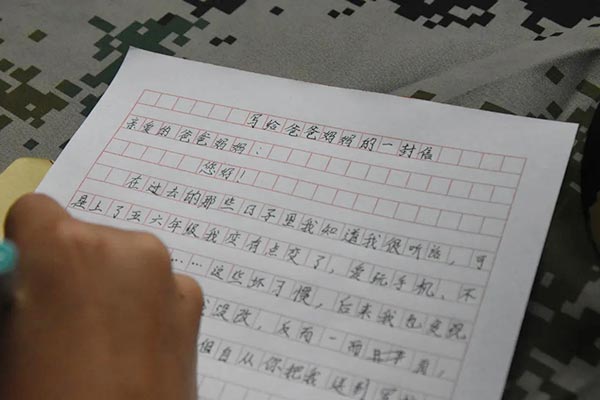 写给爸爸妈妈的一封信
亲爱的爸爸妈妈：
您好！
在过去的那些日子里我知道我很听话，可
是上了五六年级我变有点变了，爱玩手机、不
……这些坏习惯，后来我也
没改，反而一而再
但自从你把我送到